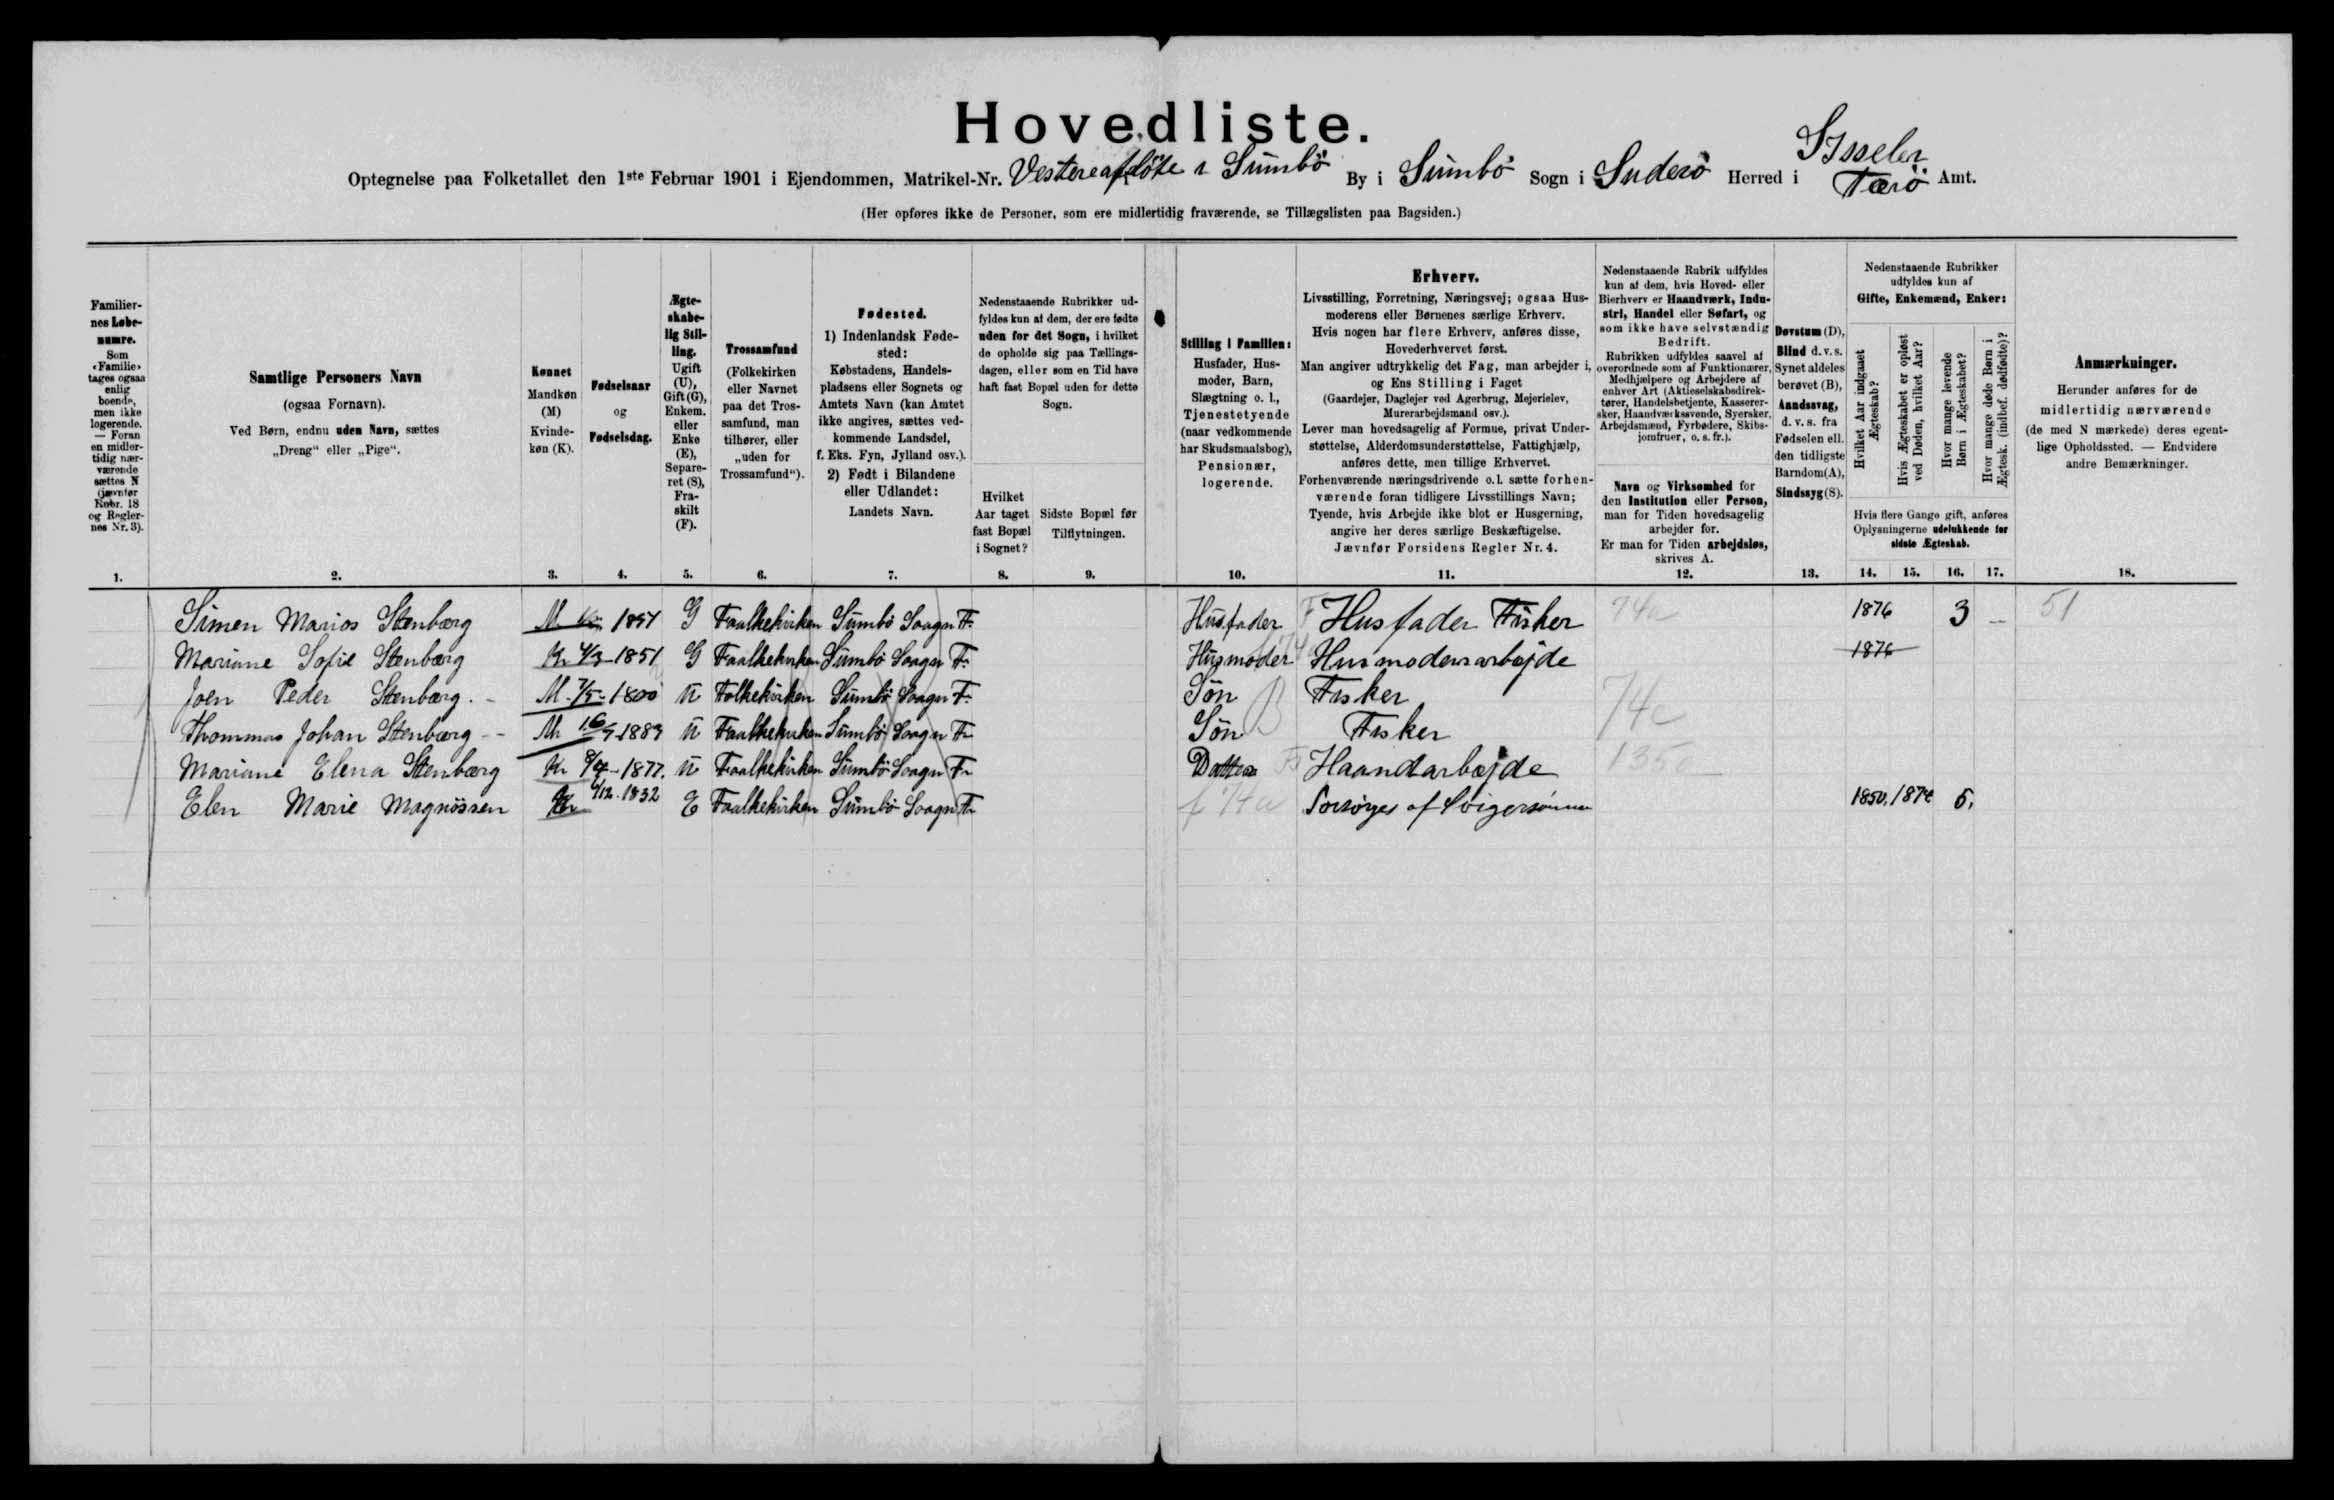 Hovedliste.
Optegnelse paa Folketallet den 1ste Februar 1901 i Ejendommen, Matrikel-Nr. i Sumbö By i Sumbö Sogn i Suderö Herred i Sysseler Færö Amt.
(Her opføres ikke de Personer, som ere midlertidig fraværende, se Tillægslisten paa Bagsiden.)
Familiernes Løbenumre.
Som «Familie» tages ogsaa enlig boende, men ikke logerende. — Foran en midlertidig nærværende sættes N (jævnfør Rubr. 18 og Reglernes Nr. 3).
Samtlige Personers Navn
(ogsaa Fornavn).
Ved Børn, endnu uden Navn, sættes
„Dreng“ eller „Pige“.
Kønnet
Mandkøn (M)
Kvindekøn (K).
Fødselsaar
og
Fødselsdag.
Ægteskabelig Stilling.
Ugift (U), Gift (G), Enkem. eller Enke (E), Separeret (S), Fraskilt (F).
Trossamfund
(Folkekirken eller Navnet paa det Trossamfund, man tilhører, eller „uden for Trossamfund“).
Fødested.
1) Indenlandsk Fødested:
Købstadens, Handelspladsens eller Sognets og Amtets Navn (kan Amtet ikke angives, sættes vedkommende Landsdel, f. Eks. Fyn, Jylland osv.).
2) Født i Bilandene eller Udlandet:
Landets Navn.
Nedenstaaende Rubrikker udfyldes kun af dem, der ere fødte uden for det Sogn, i hvilket de opholde sig paa Tællingsdagen, eller som en Tid have haft fast Bopæl uden for dette Sogn.
Hvilket Aar taget fast Bopæl i Sognet?
Sidste Bopæl før Tilflytningen.
Stilling i Familien:
Husfader, Husmoder, Barn, Slægtning o. l., Tjenestetyende (naar vedkommende har Skudsmaalsbog), Pensionær, logerende.
Erhverv.
Livsstilling, Forretning, Næringsvej; ogsaa Husmoderens eller Børnenes særlige Erhverv.
Hvis nogen har flere Erhverv, anføres disse, Hovederhvervet først.
Man angiver udtrykkelig det Fag, man arbejder i, og Ens Stilling i Faget
(Gaardejer, Daglejer ved Agerbrug, Mejerielev, Murerarbejdsmand osv.).
Lever man hovedsagelig af Formue, privat Understøttelse, Alderdomsunderstøttelse, Fattighjælp, anføres dette, men tillige Erhvervet.
Forhenværende næringsdrivende o. l. sætte forhenværende foran tidligere Livsstillings Navn;
Tyende, hvis Arbejde ikke blot er Husgerning, angive her deres særlige Beskæftigelse.
Jævnfør Forsidens Regler Nr. 4.
Nedenstaaende Rubrik udfyldes kun af dem, hvis Hoved- eller Bierhverv er Haandværk, Industri, Handel eller Søfart, og som ikke have selvstændig Bedrift.
Rubrikken udfyldes saavel af overordnede som af Funktionærer, Medhjælpere og Arbejdere af enhver Art (Aktieselskabsdirektører, Handelsbetjente, Kasserersker, Haandværkssvende, Syersker, Arbejdsmænd, Fyrbødere, Skibsjomfruer, o. s. fr.).
Navn og Virksomhed for den Institution eller Person, man for Tiden hovedsagelig arbejder for.
Er man for Tiden arbejdsløs, skrives A.
Døvstum (D), Blind d. v. s. Synet aldeles berøvet (B), Aandssvag, d. v. s. fra Fødselen ell. den tidligste Barndom (A), Sindssyg (S).
Nedenstaaende Rubrikker udfyldes kun af
Gifte, Enkemænd, Enker:
Hvilket Aar indgaaet Ægteskab?
Hvis Ægteskabet er opløst ved Døden, hvilket Aar?
Hvor mange levende Børn i Ægteskabet?
Hvor mange døde Børn i Ægtesk. (indbef. dødfødte)?
Hvis flere Gange gift, anføres Oplysningerne udelukkende for sidste Ægteskab.
Anmærkninger.
Herunder anføres for de midlertidig nærværende (de med N mærkede) deres egentlige Opholdssted. — Endvidere andre Bemærkninger.
1. 2. 3. 4. 5. 6. 7. 8. 9. 10. 11. 12. 13. 14. 15. 16. 17. 18.
Simen Marios Stenbærg M 1854 G Faalkekirken Sumbö Soagn F. Husfader F Husfader Fisker 74a 1876 3 – 51
Mariane Sofie Stenbærg K 4/3 1851 G Faalkekirken Sumbö Soagn F. Husmoder Husmodersarbejde 1876
Joen Peder Stenbærg. – M 7/5 1800 U Folkekirken Sumbö Soagn F. Søn B Fisker 74c
Thommas Johan Stenbærg – – M 16/5 1889 U Faalkekirken Sumbö Soagn F. Søn Fisker
Mariane Elena Stenbærg K 8/4 – 1877. U Faalkekirken Sumbö Soagn F. Datter Haandarbejde 135
Elen Marie Magnüssen K 6/12 . 1832 E Faalkekirken Sumbö Soagn F. f 74a Forsørges af Svigersønnen 1850. 1874 5.